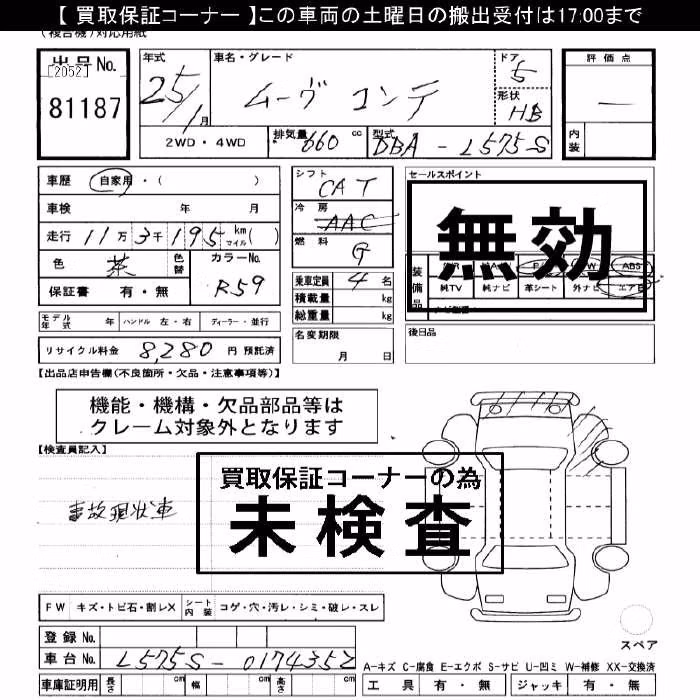 【 買取保証コーナー 】この車両の土曜日の搬出受付は17:00まで
(複合機)対応用紙
出品No.
[2052]
81187
年式
25/1月
車名・グレード
ムーヴ コンテ
ドア
5
形状
HB
評価点
—
内装
2WD・4WD
排気量 660 cc
型式 DBA - L575S
車歴 自家用・( )
車検 年 月
走行 11万3千195 km マイル ( )
色 茶 色替
カラーNo.
R59
保証書 有・無
シフト
CAT
冷房
AAC
燃料
G
乗車定員 4 名
積載量 kg
総重量 kg
セールスポイント
無効
装備品
ABS
純TV 純ナビ 革シート 外ナビ エアB
モデル年式 年 ハンドル 左・右 ディーラー・並行
リサイクル料金 8,280 円 預託済
名変期限
月 日
後日品
【出品店申告欄(不良箇所・欠品・注意事項等)】
機能・機構・欠品部品等は
クレーム対象外となります
【検査員記入】
買取保証コーナーの為
未検査
事故現状車
FW キズ・トビ石・割レX シート内装 コゲ・穴・汚レ・シミ・破レ・スレ
スペア
登録No.
車台No. L575S - 0174352
A-キズ C-腐食 E-エクボ S-サビ U-凹ミ W-補修 XX-交換済
車庫証明用 長さ cm 幅 cm 高さ cm
工具 有・無 ジャッキ 有・無